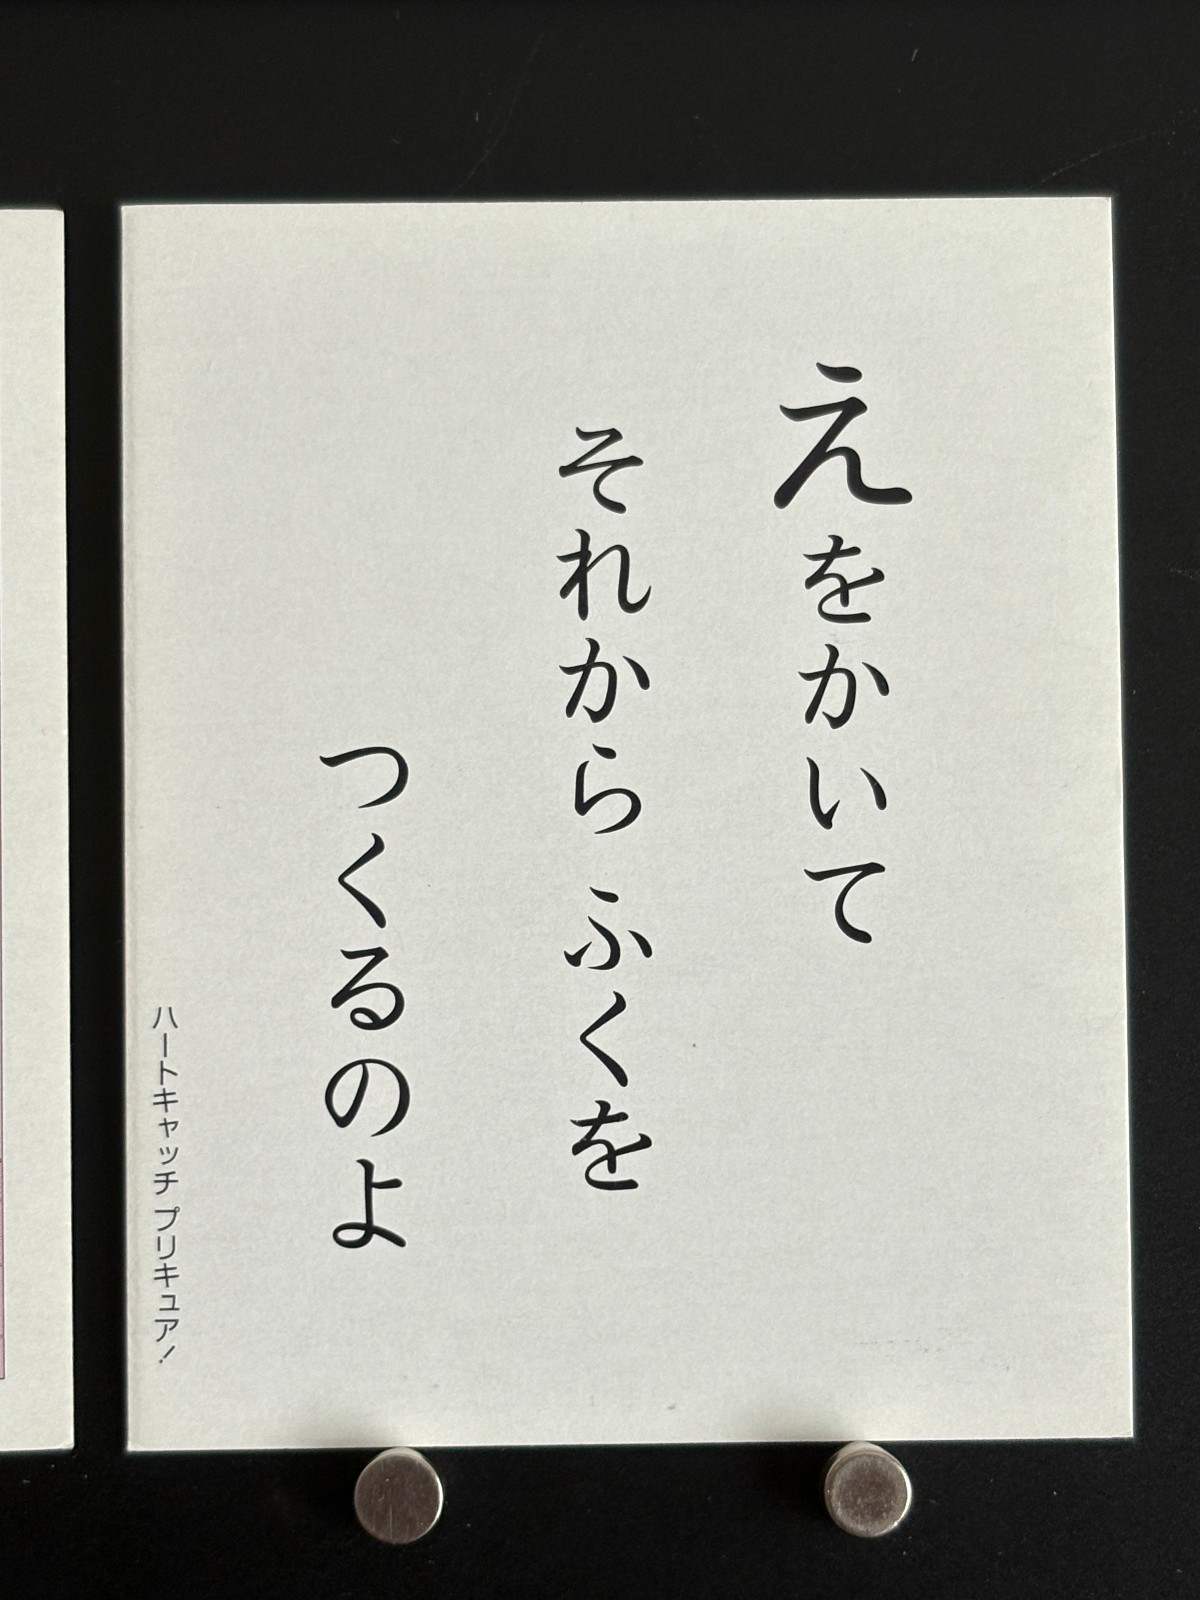 えをかいて
それから ふくを
つくるのよ
ハートキャッチ プリキュア!